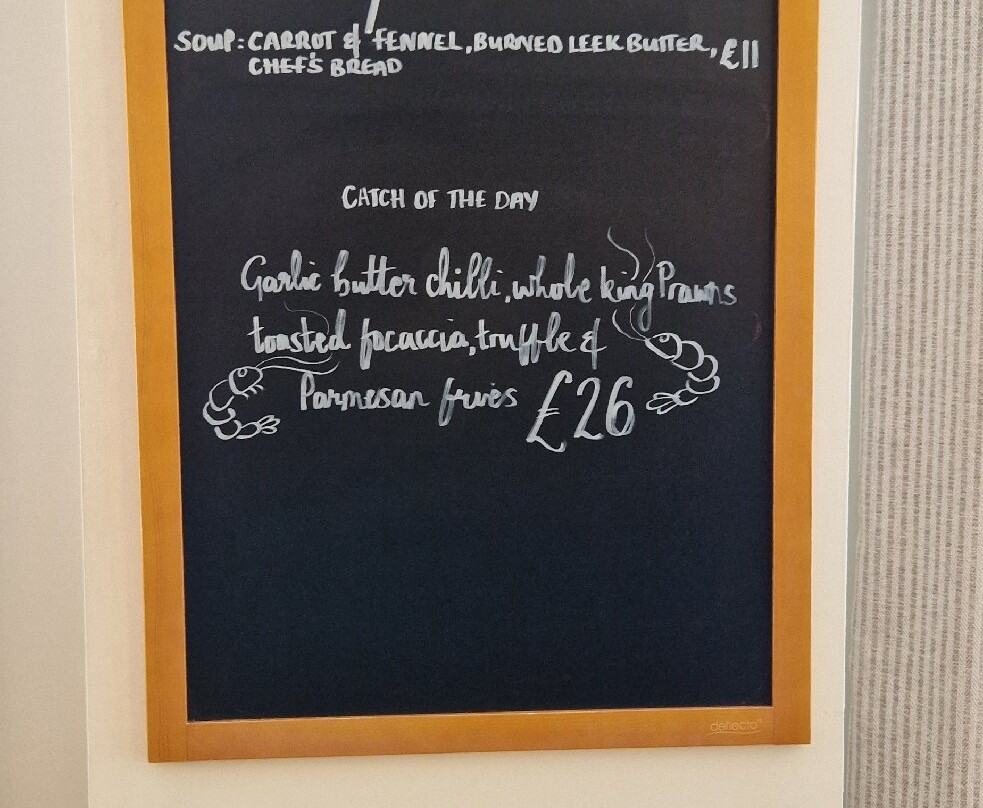 SOUP: CARROT & FENNEL, BURNED LEEK BUTTER, £11
CHEF'S BREAD
CATCH OF THE DAY
Garlic butter chilli, whole king Prawns
toasted focaccia, truffle &
Parmesan fries £26
deflecto